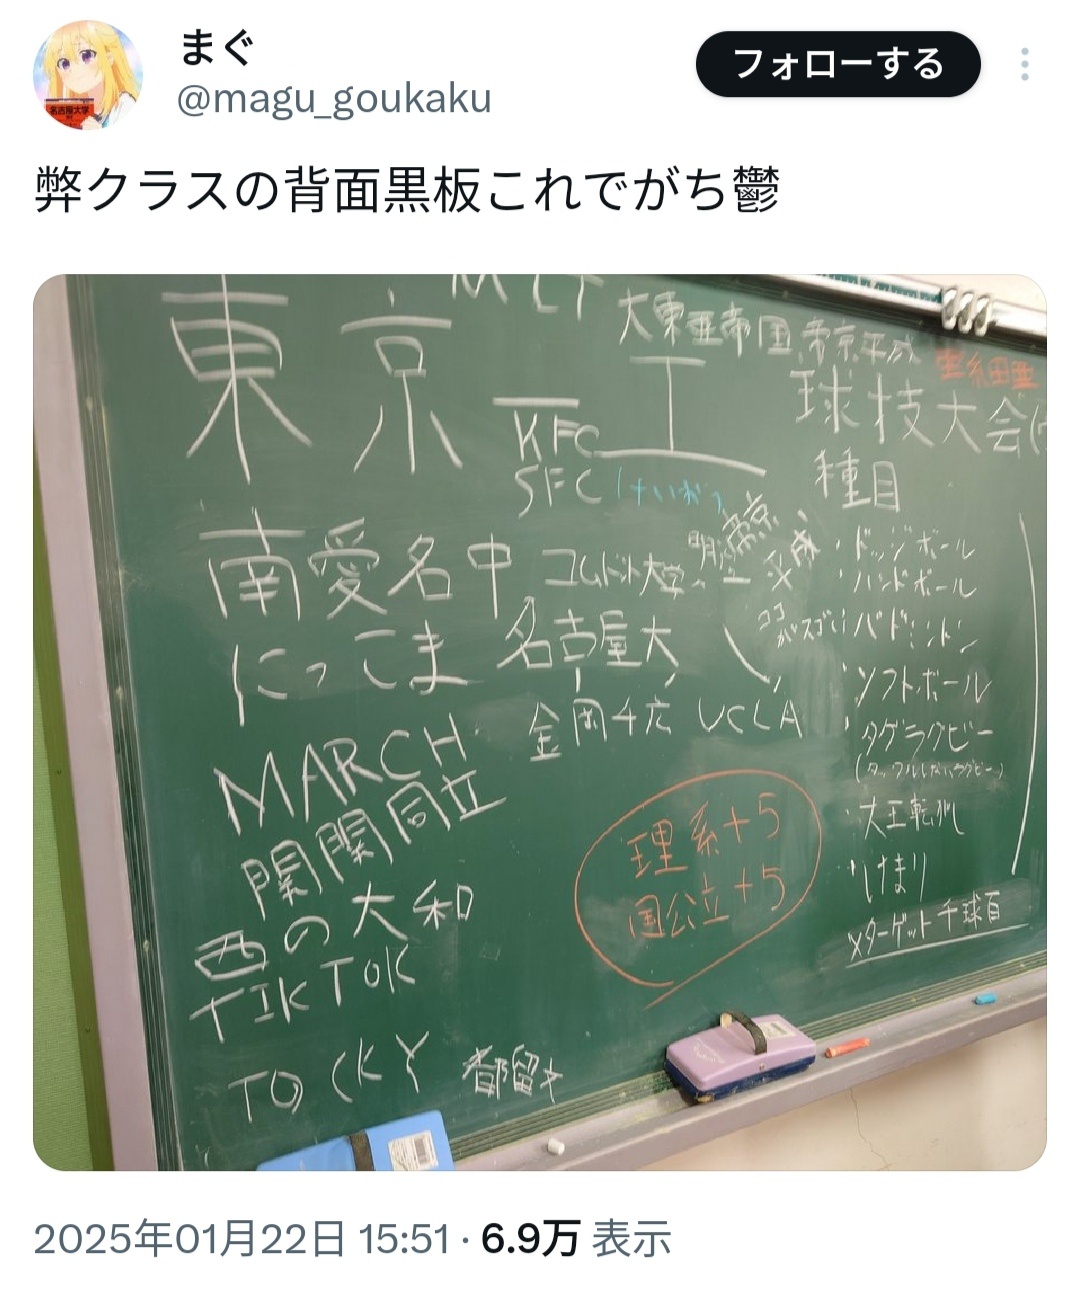 まぐ
@magu_goukaku
フォローする
名古屋大学
弊クラスの背面黒板これでがち鬱
東京
工
大東亜帝国
帝京平成
KFC
SFC
けいおう
球技大会
種目
・ドッジボール
・ハンドボール
・バドミントン
・ソフトボール
・タグラグビー
・大王転がし
・けまり
×ターゲット千球百
南愛名中
コムドット大学
帝京
平成
ココがスゴい
にっこま
名古屋大
金岡千広
UCLA
MARCH
関関同立
西の大和
TIKTOK
TOCKY
都留文
理系+5
国公立+5
2025年01月22日 15:51 · 6.9万 表示